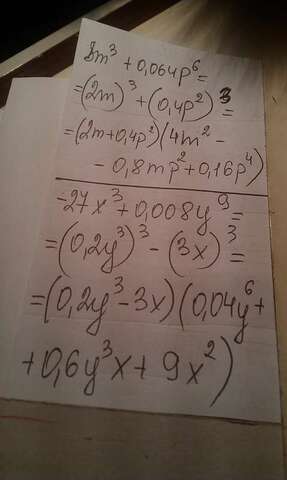 8m³ + 0,064p⁶ =
= (2m)³ + (0,4p²)³ =
= (2m + 0,4p²)(4m² -
- 0,8mp² + 0,16p⁴)
-27x³ + 0,008y⁹ =
= (0,2y³)³ - (3x)³ =
= (0,2y³ - 3x)(0,04y⁶ +
+ 0,6y³x + 9x²)